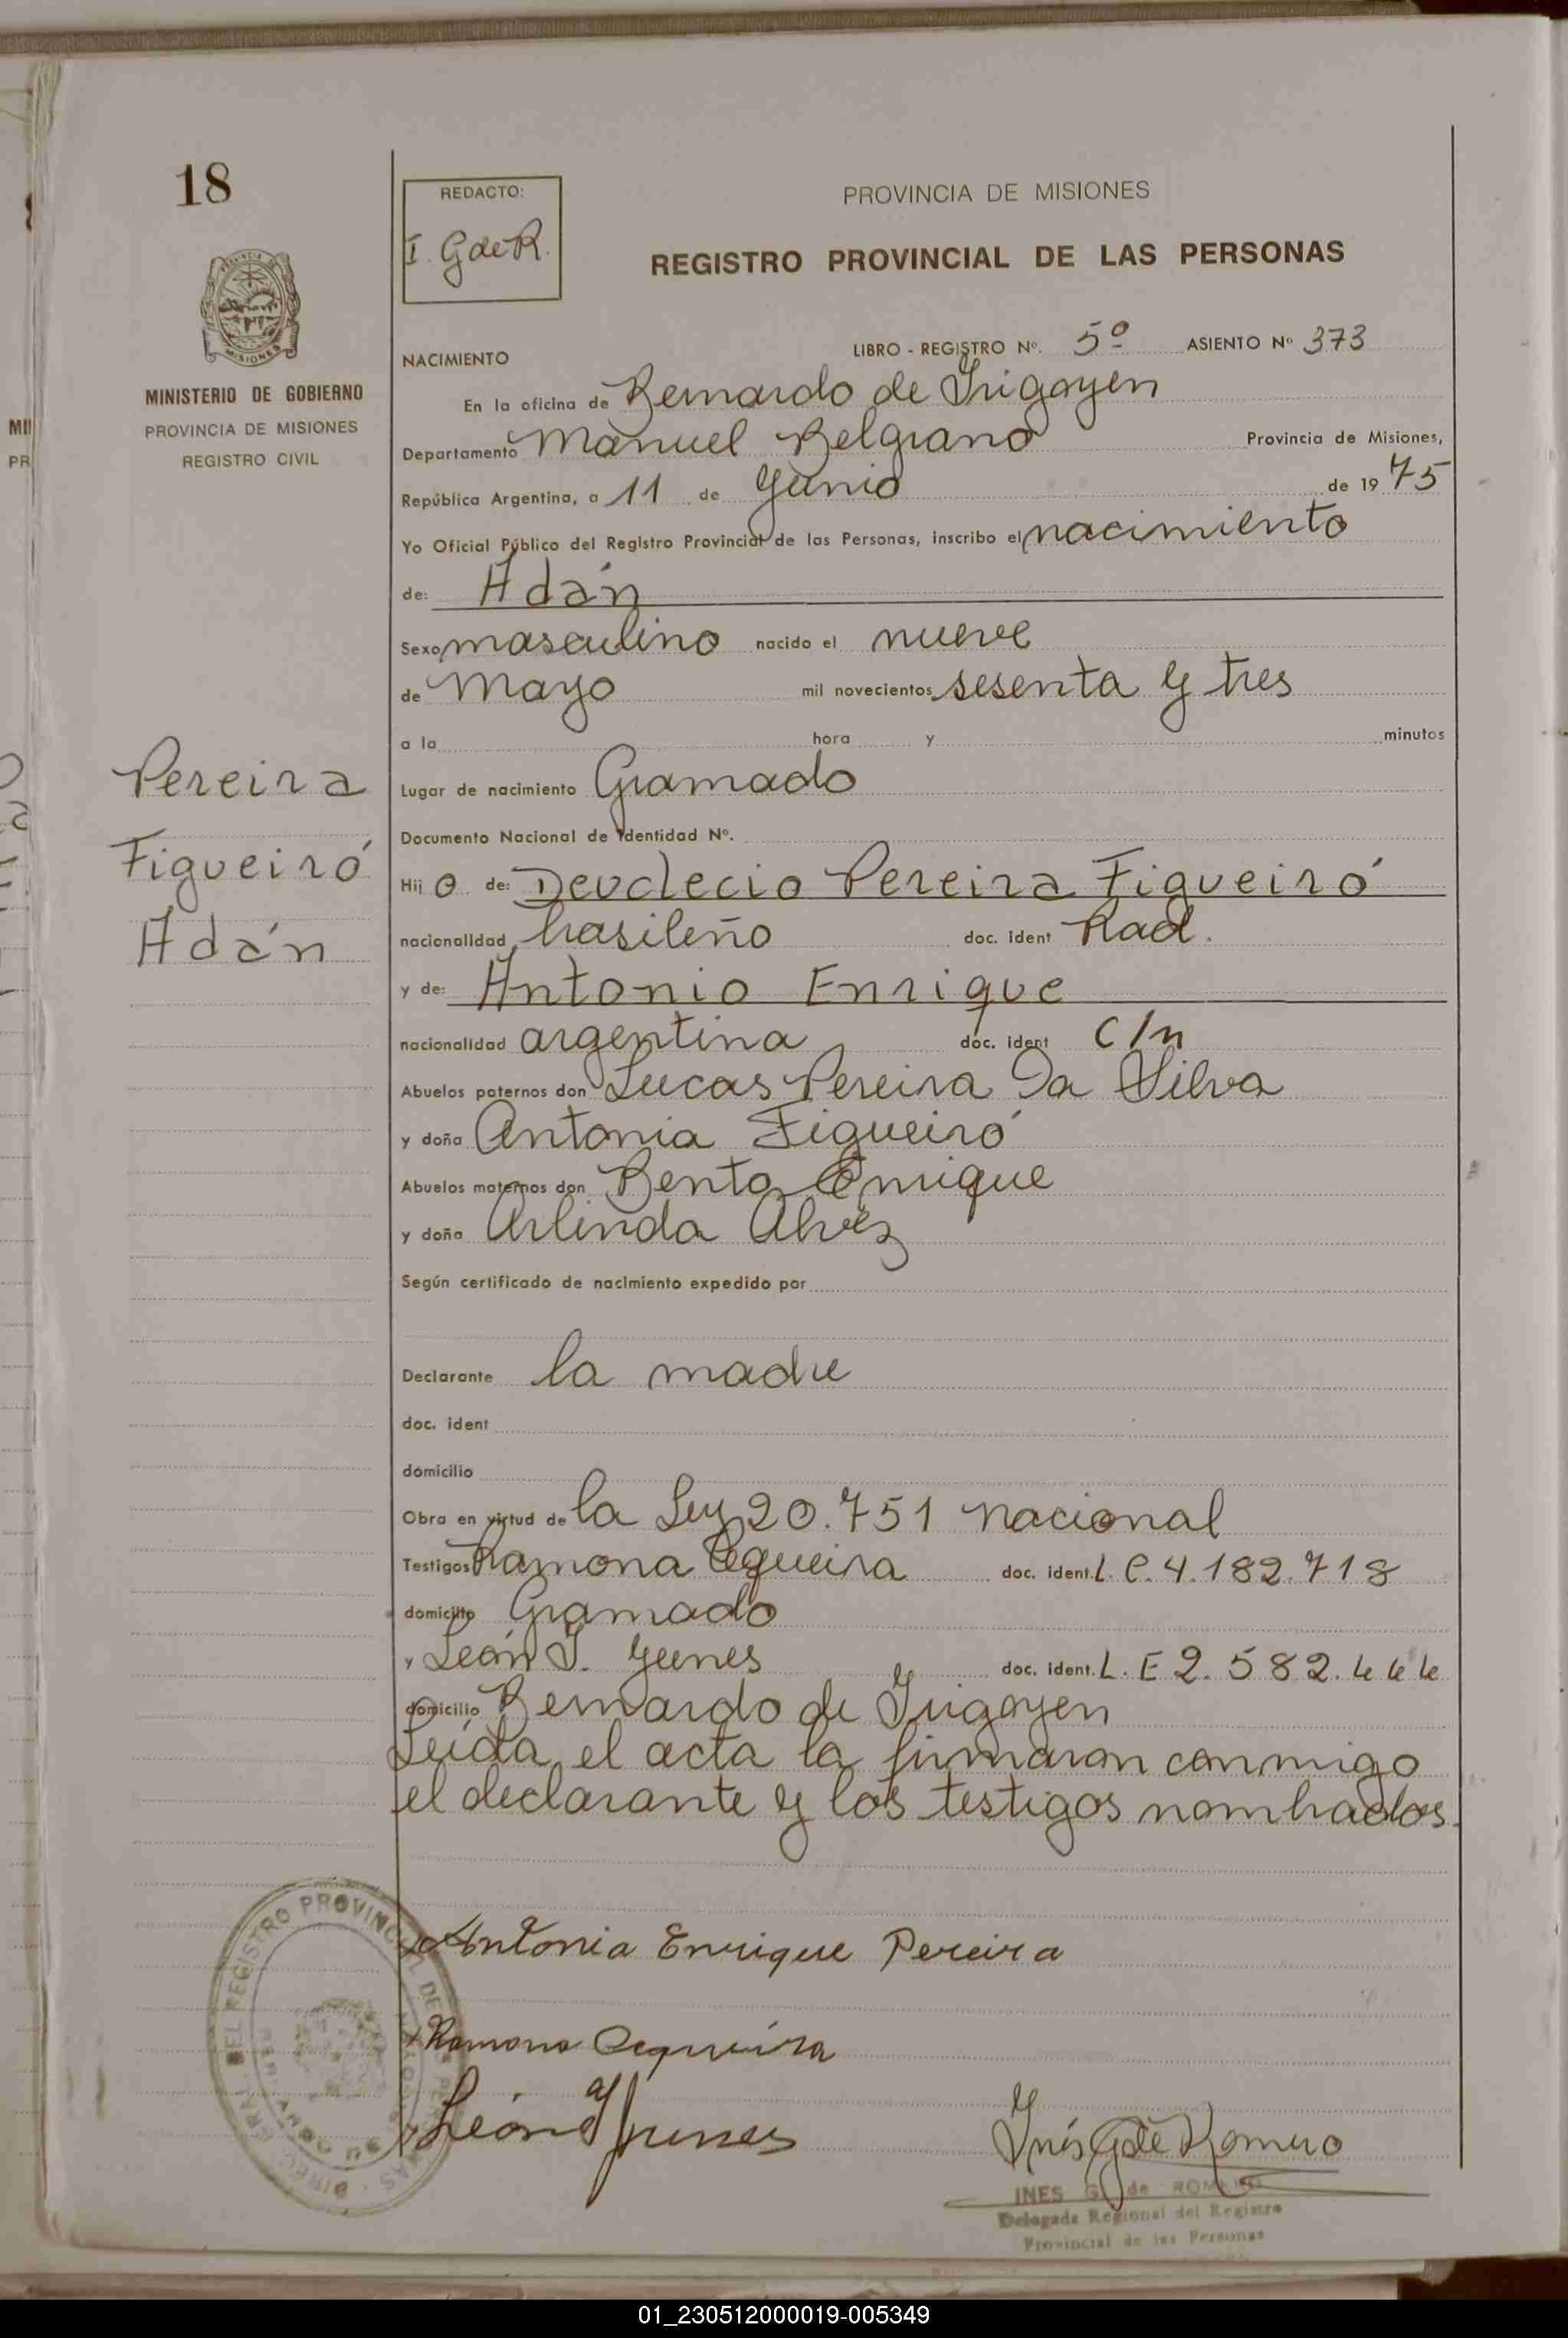 18
REDACTO:
I. G de R.
PROVINCIA DE MISIONES
REGISTRO PROVINCIAL DE LAS PERSONAS
MISIONES
MINISTERIO DE GOBIERNO
PROVINCIA DE MISIONES
REGISTRO CIVIL
NACIMIENTO
LIBRO - REGISTRO Nº. 5º ASIENTO Nº 373
En la oficina de Bernardo de Irigoyen
Departamento Manuel Belgrano Provincia de Misiones,
República Argentina, a 11 de Junio de 1975
Yo Oficial Público del Registro Provincial de las Personas, inscribo el nacimiento
de: Adán
Sexo masculino nacido el nueve
de Mayo mil novecientos sesenta y tres
a la hora y minutos
Pereira
Figueiró
Adán
Lugar de nacimiento Gramado
Documento Nacional de Identidad Nº.
Hijo de: Deoclecio Pereira Figueiró
nacionalidad brasileño doc. ident Rad.
y de: Antonio Enrique
nacionalidad argentina doc. ident C/n
Abuelos paternos don Lucas Pereira Da Silva
y doña Antonia Figueiró
Abuelos maternos don Bento Enrique
y doña Arlinda Alvez
Según certificado de nacimiento expedido por
Declarante la madre
doc. ident
domicilio
Obra en virtud de la Ley 20.751 nacional
Testigos Ramona Cequeira doc. ident. L. C. 4.182.718
domicilio Gramado
y León J. Yunes doc. ident. L. E 2.582.444
domicilio Bernardo de Irigoyen
Leída el acta la firmaron conmigo
el declarante y los testigos nombrados.
Antonia Enrique Pereira
Ramona Cequeira
León J Yunes
Inés G de Romero
INES G. de ROMERO
Delegada Regional del Registro
Provincial de las Personas
01_230512000019-005349